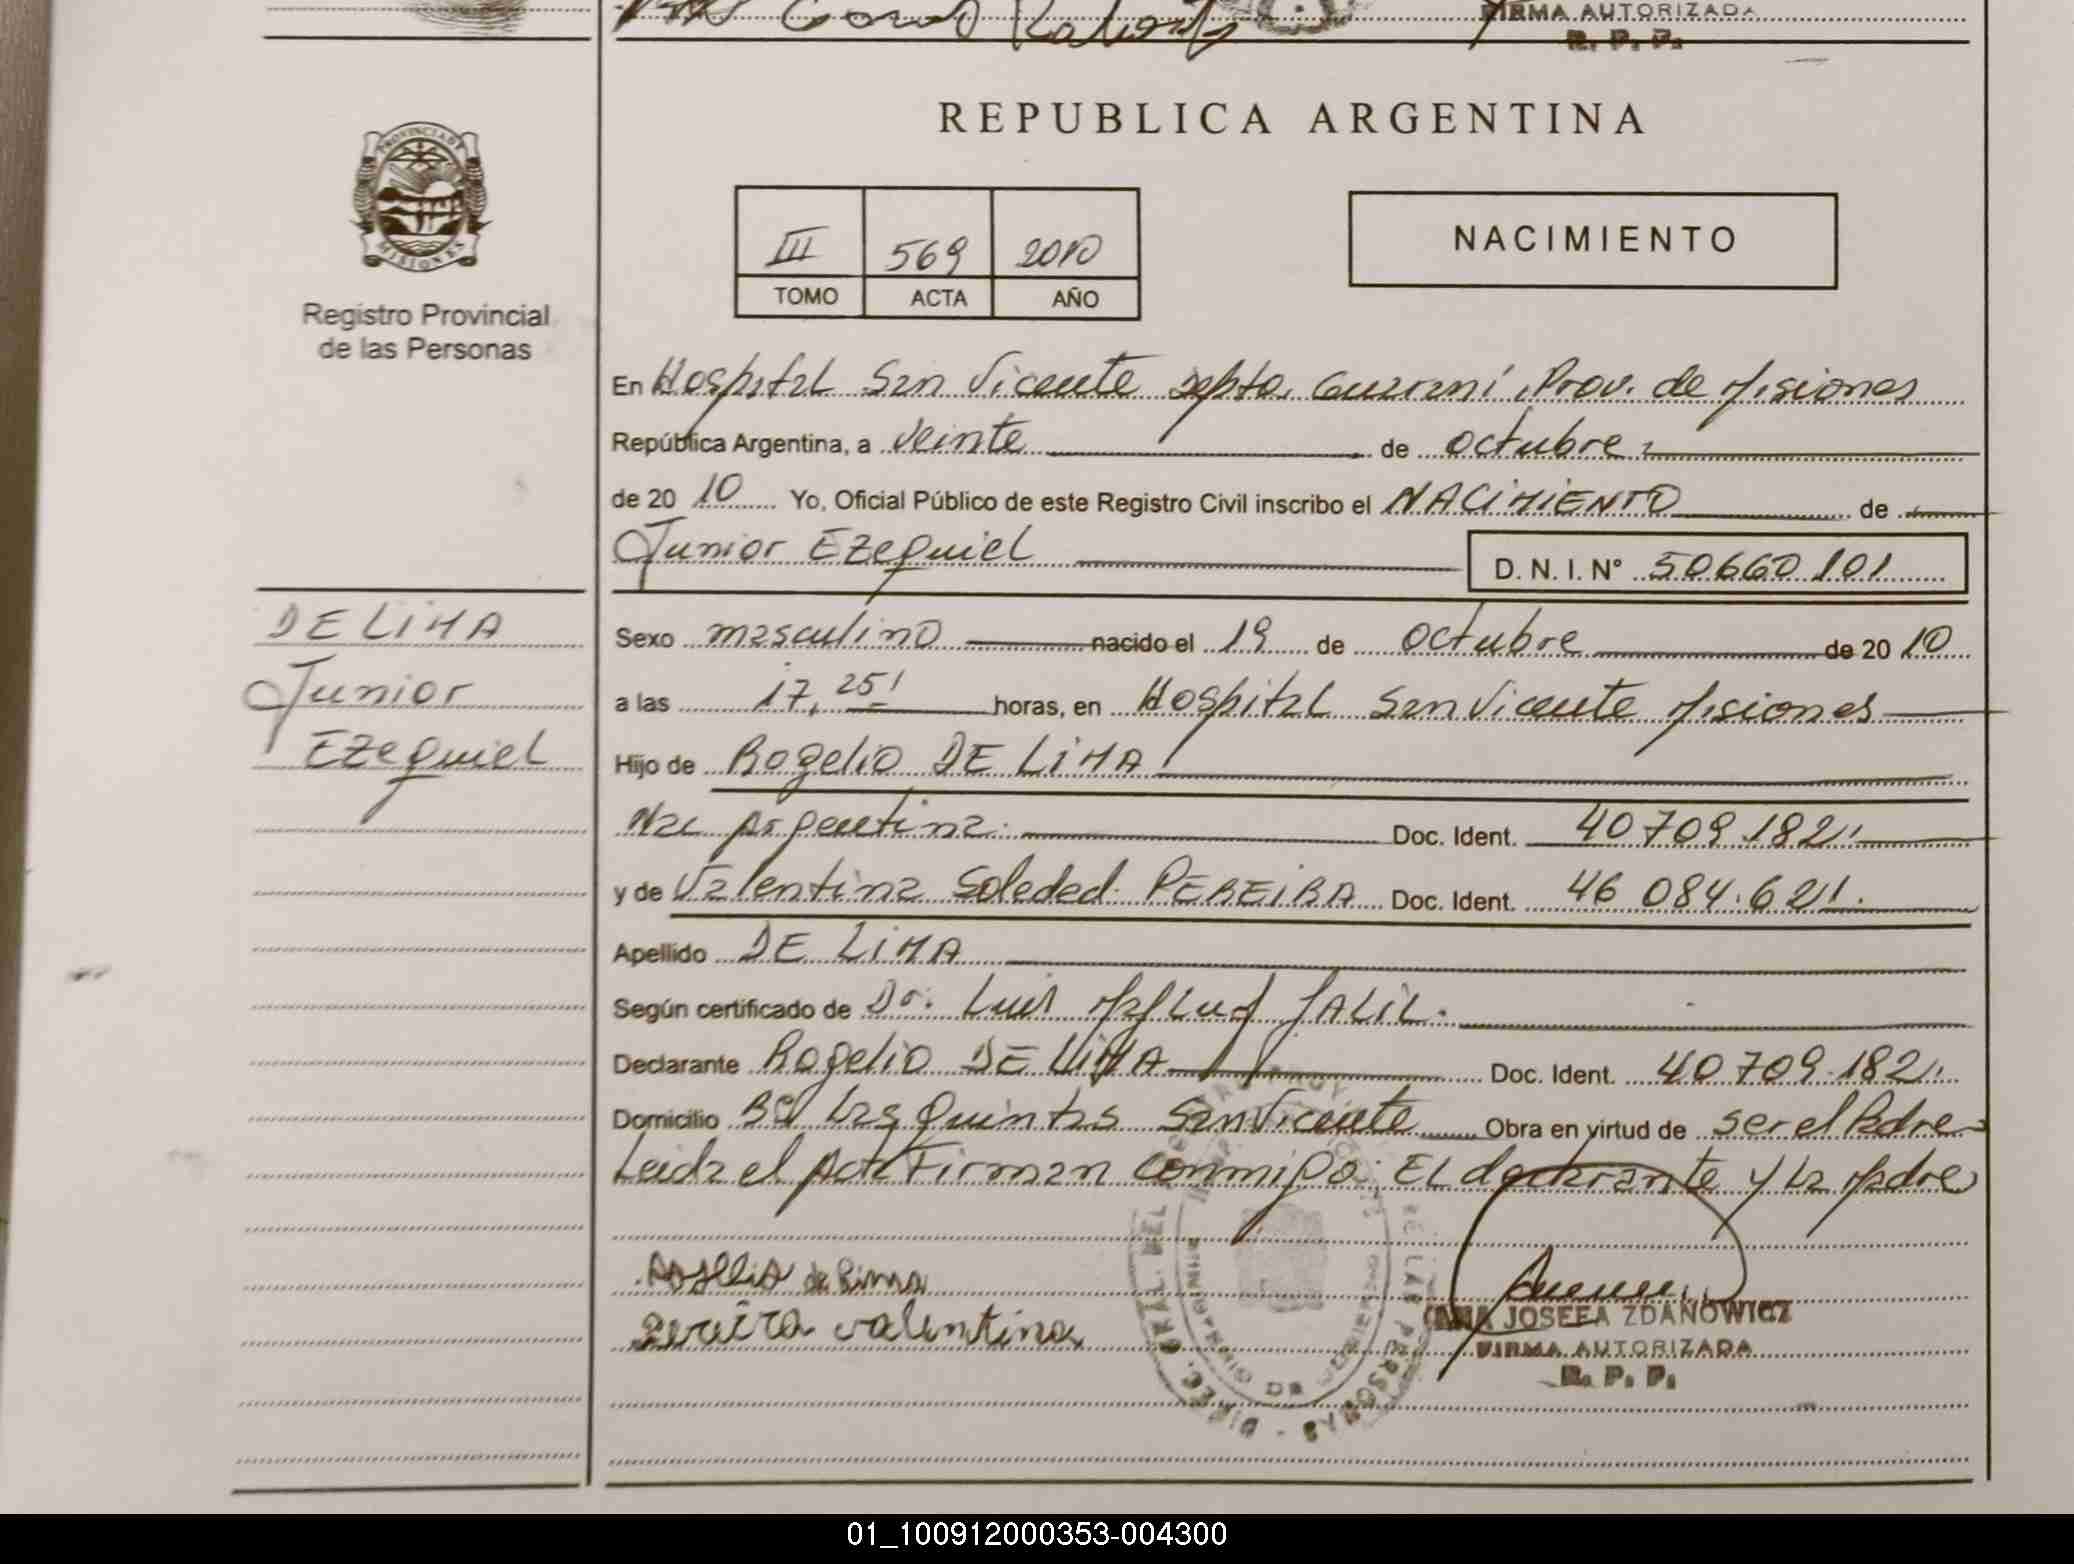 FIRMA AUTORIZADA
R. P. P.
PROVINCIA DE
MISIONES
Registro Provincial
de las Personas
DE LIMA
Junior
Ezequiel
REPUBLICA ARGENTINA
III 569 2010
TOMO ACTA AÑO
NACIMIENTO
En Hospital San Vicente Depto. Guaraní, Prov. de Misiones
República Argentina, a veinte de octubre
de 2010 Yo, Oficial Público de este Registro Civil inscribo el NACIMIENTO de
Junior Ezequiel D. N. I. N° 50660101
Sexo masculino nacido el 19 de octubre de 2010
a las 17,25' horas, en Hospital San Vicente Misiones
Hijo de Rogelio DE LIMA
Nac Argentina. Doc. Ident. 40709.182
y de Valentina Soledad PEREIRA Doc. Ident. 46 084.621.
Apellido DE LIMA
Según certificado de Dr. Luis JALIL.
Declarante Rogelio DE LIMA Doc. Ident. 40709.182
Domicilio Bº Las Quintas San Vicente Obra en virtud de ser el Padre
Leida el Acta Firman conmigo: El declarante y la Madre
Rogelio de Lima
Pereira valentina
DIREC. GRAL. DEL REGISTRO DE LAS PERSONAS
MINISTERIO DE GOBIERNO
ANA JOSEFA ZDANOWICZ
FIRMA AUTORIZADA
R. P. P.
01_100912000353-004300